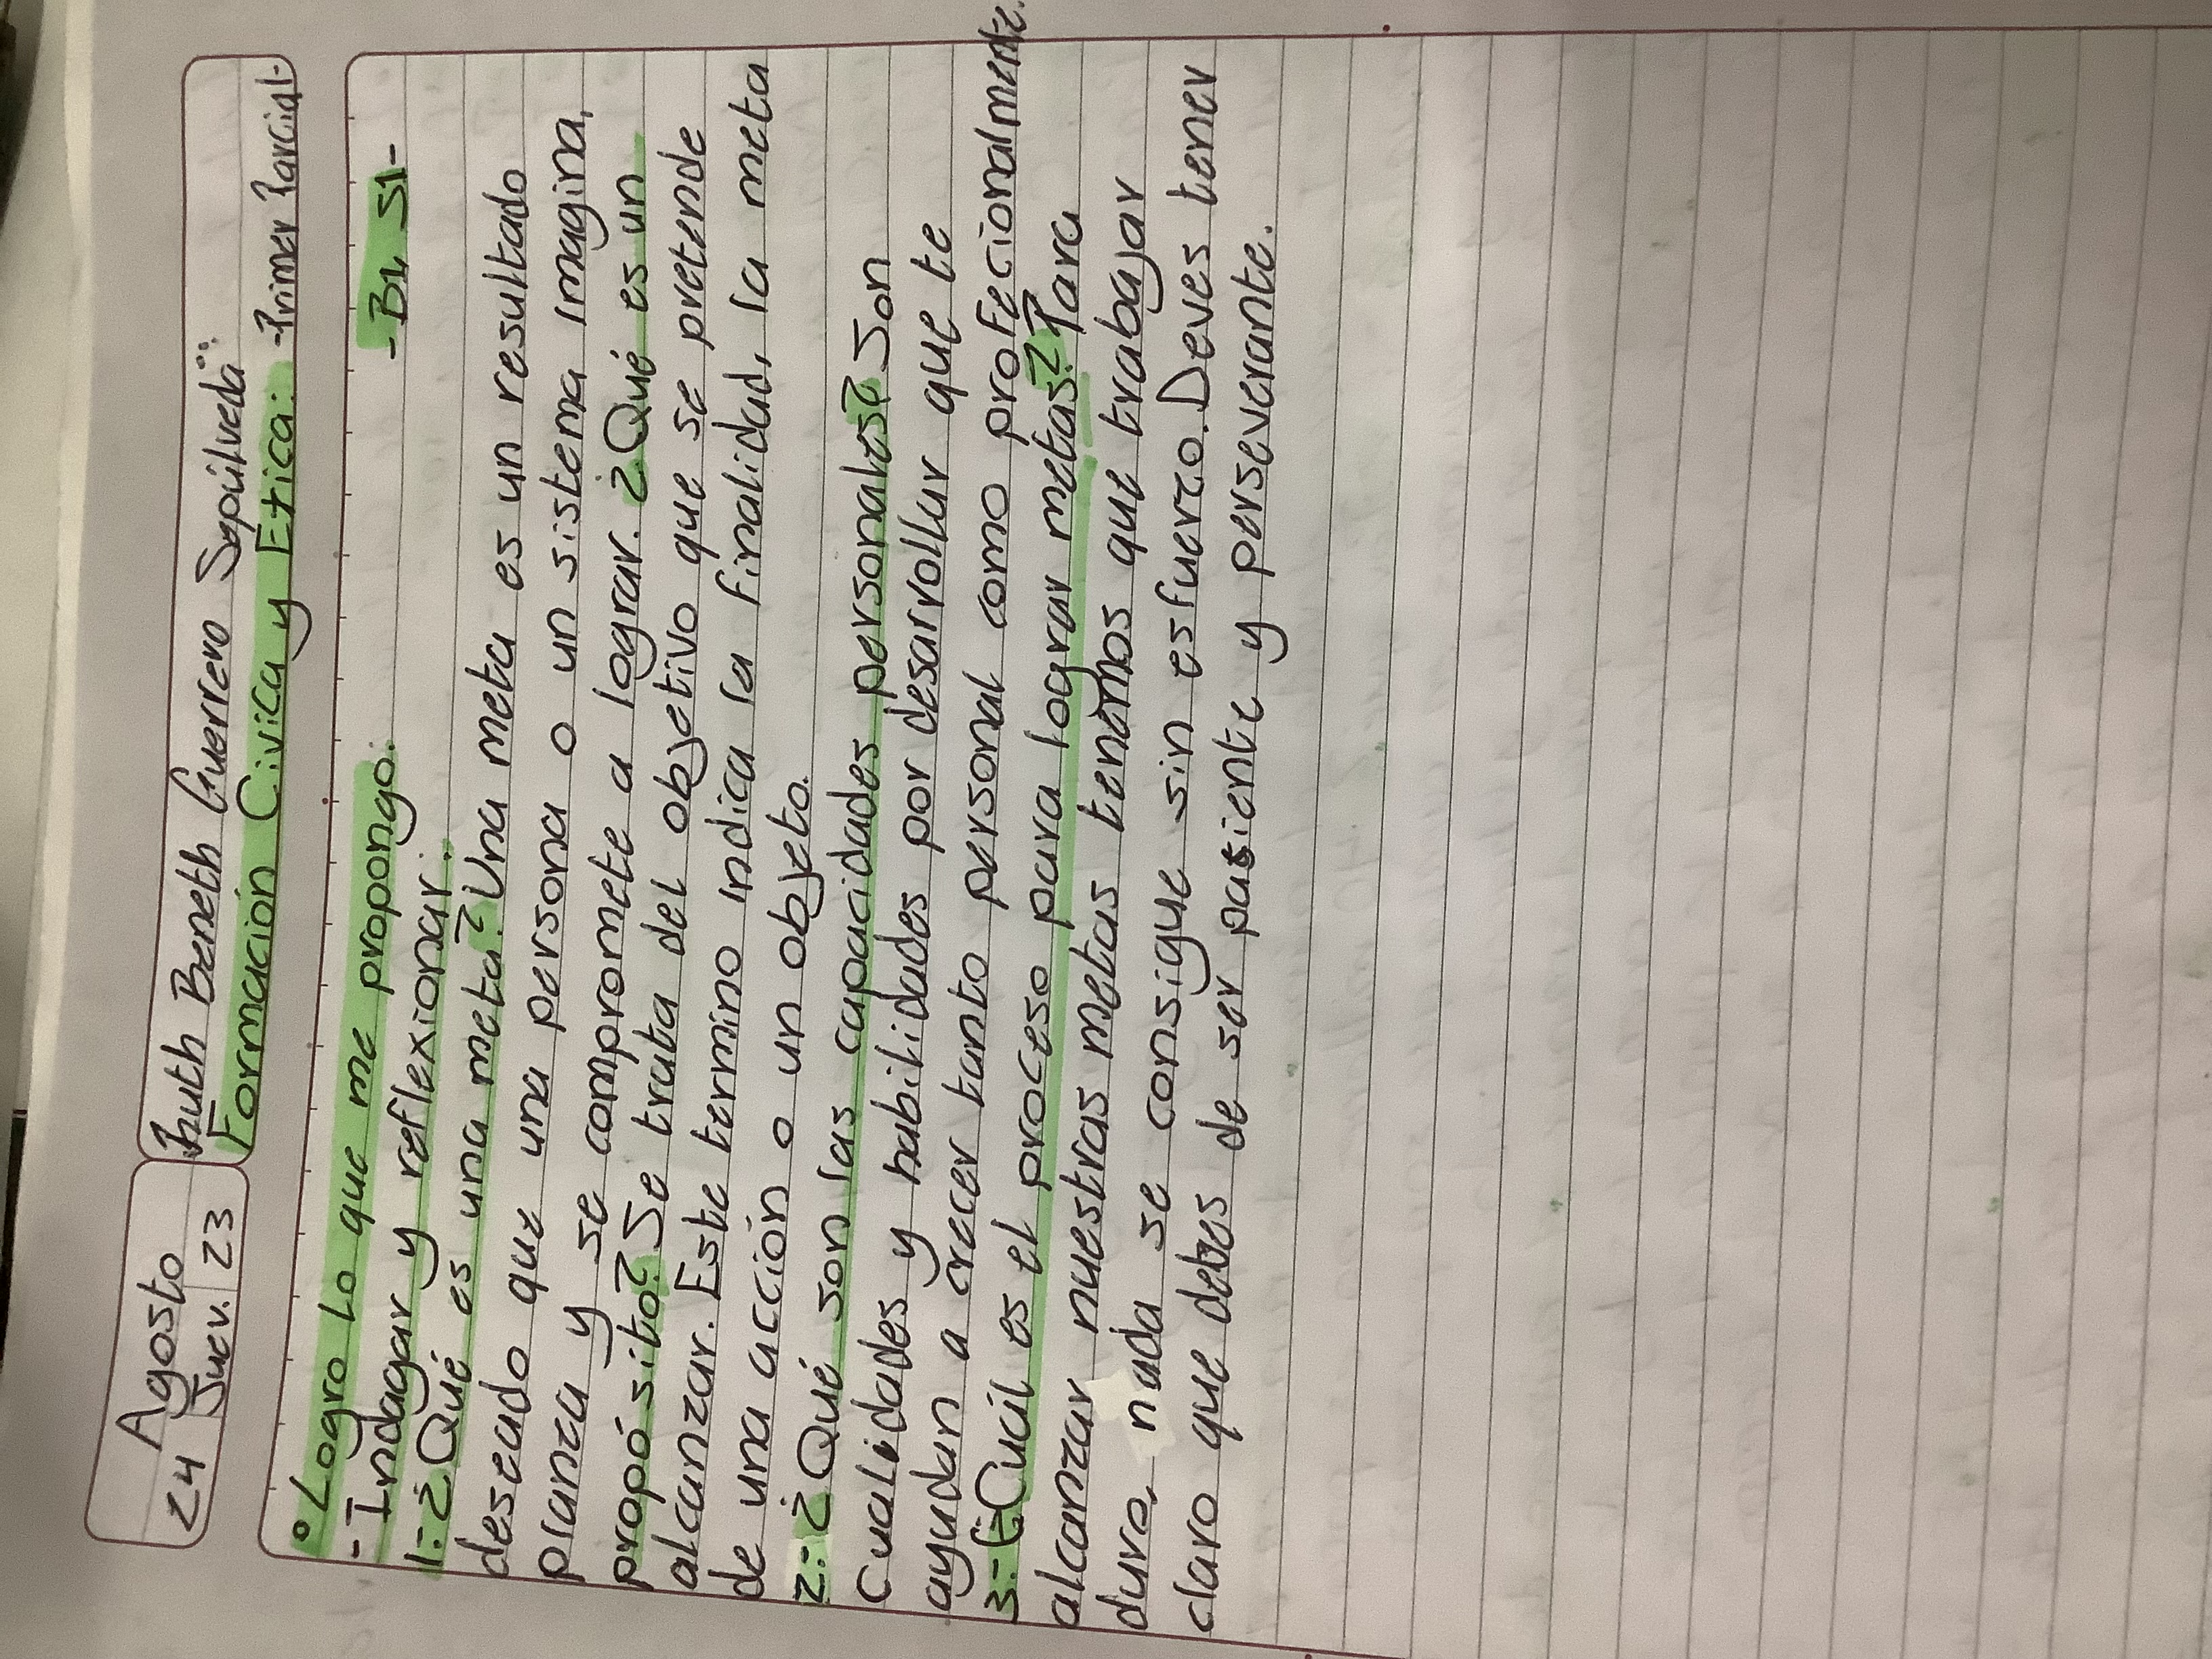 24 Agosto
Juev. 23
Ruth Beneth Guerrero Sepúlveda
Formación Civica y Etica: -Primer Parcial-
°Logro Lo que me propongo. -B1 S1-
- Indagar y reflexionar.
1.- ¿Qué es una meta? Una meta es un resultado
deseado que una persona o un sistema imagina,
planza y se compromete a lograr. ¿Qué es un
propósito? Se trata del objetivo que se pretende
alcanzar. Este termino indica la finalidad, la meta
de una acción o un objeto.
2.- ¿Qué son las capacidades personales? Son
cualidades y habilidades por desarrollar que te
ayudan a crecer tanto personal como profecionalmente.
3.- ¿Cuál es el proceso para lograr metas? Para
alcanzar nuestras metas tenemos que trabajar
duro, nada se consigue sin esfuerzo. Deves tener
claro que debes de ser pasiente y perseverante.